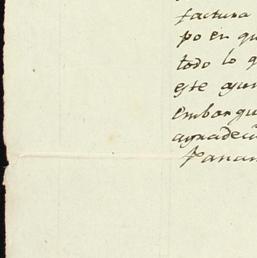 factura
po en qu
todo lo q
este ayun
embarqu
agradeci
Panam